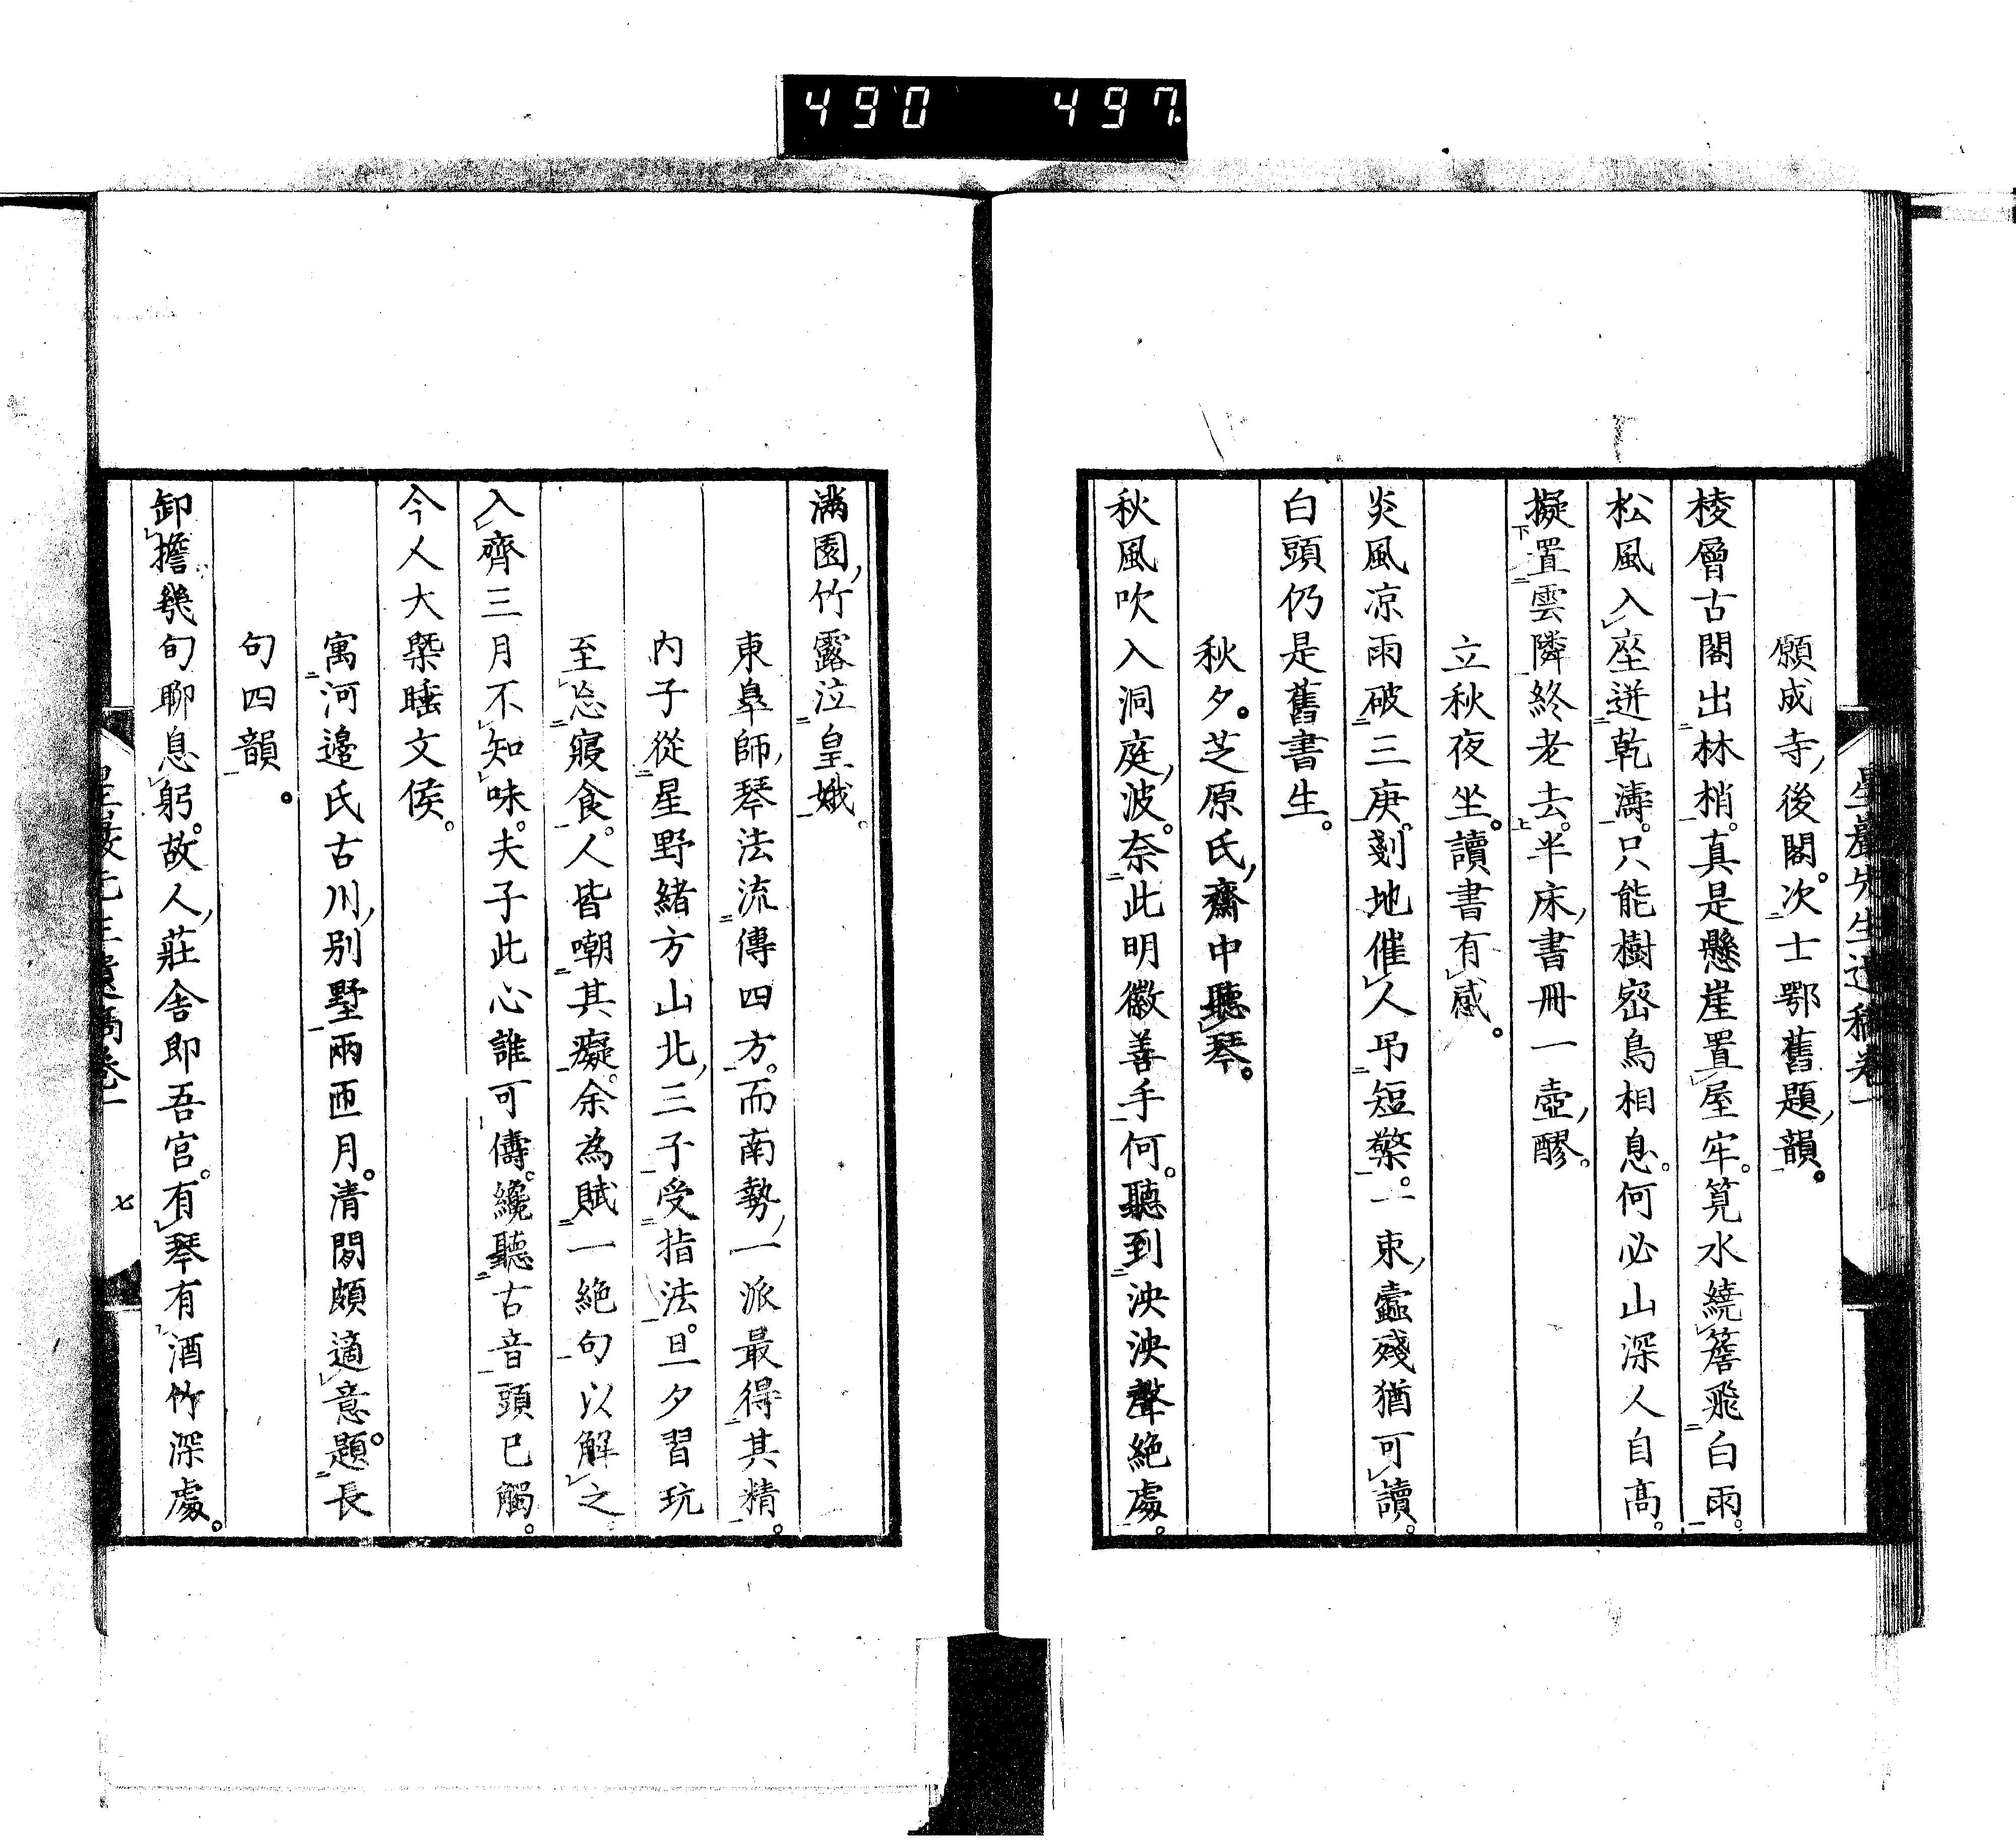 490 497
星巖先生遺稿卷一
願成寺後閣。次士鄂舊題韻。
棱層古閣出林梢。真是懸崖置屋牢。筧水繞簷飛白雨。
松風入座迸乾濤。只能樹密鳥相息。何必山深人自高。
擬置雲隣終老去。半床書冊一壺醪。
立秋夜坐。讀書有感。
炎風凉雨破三庚。剗地催人吊短檠。一束蠹殘猶可讀。
白頭仍是舊書生。
秋夕。芝原氏齋中聽琴。
秋風吹入洞庭波。奈此明徽善手何。聽到泱泱聲絶處。
滿園竹露泣皇娥。
東皐師琴法流傳四方。而南勢一派最得其精。
内子從星野緒方山北三子受指法。旦夕習玩
至忘寢食。人皆嘲其癡。余為賦一絶句以解之。
入齊三月不知味。夫子此心誰可儔。纔聽古音頭已觸。
今人大槩睡文侯。
寓河邊氏古川別墅兩匝月。清閒頗適意。題長
句四韻。
卸擔幾旬聊息躬。故人莊舍即吾宮。有琴有酒竹深處。
七